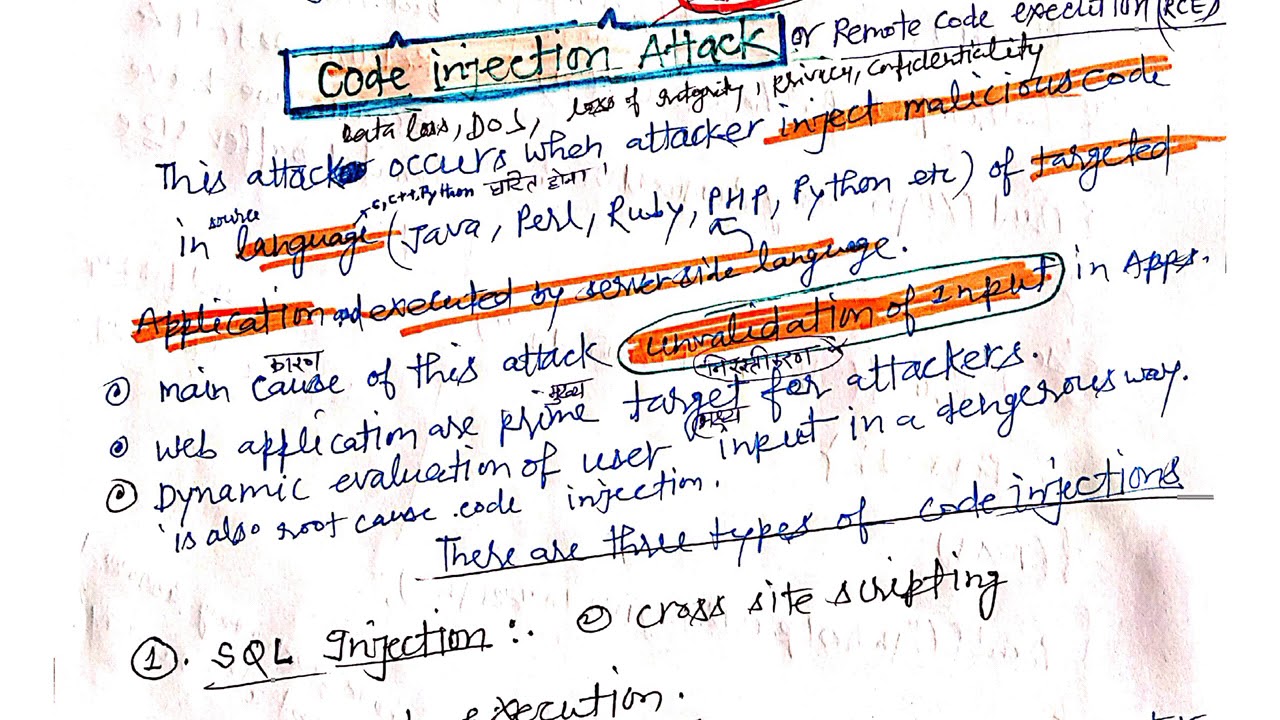 Code injection Attack or Remote code execution (RCE)
Data loss, DOS, loss of integrity, privacy, confidentiality
This attack occurs when attacker inject malicious code
c, c++, Python घटित होना
in source language (Java, Perl, Ruby, PHP, Python etc) of targeted
Application and executed by server side language.
कारण
main cause of this attack unvalidation of Input in Apps.
मुख्य
web application are prime target for attackers.
लक्ष्य
Dynamic evaluation of user input in a dengerous way.
is also root cause code injection.
There are three types of code injections
①. SQL Injection :. cross site scripting
execution.